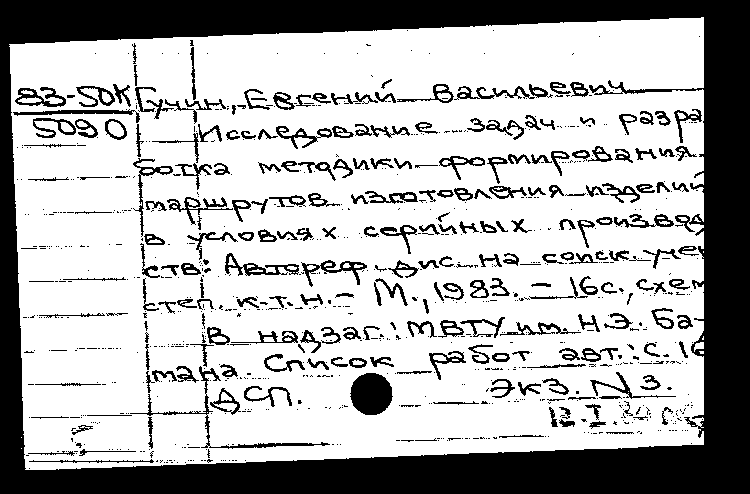 83-50К Гучин, Евгений Васильевич
5090 Исследование задач и разра
ботка методики формирования
маршрутов изготовления изделий
в условиях серийных производ
ств: Автореф. дис. на соиск. учен
степ. к.т.н.- М., 1983. - 16с., схем
В надзаг.: МВТУ им. Н.Э. Ба-
мана. Список работ авт.: с. 16
ДСП. Экз. N 3.
12.I.